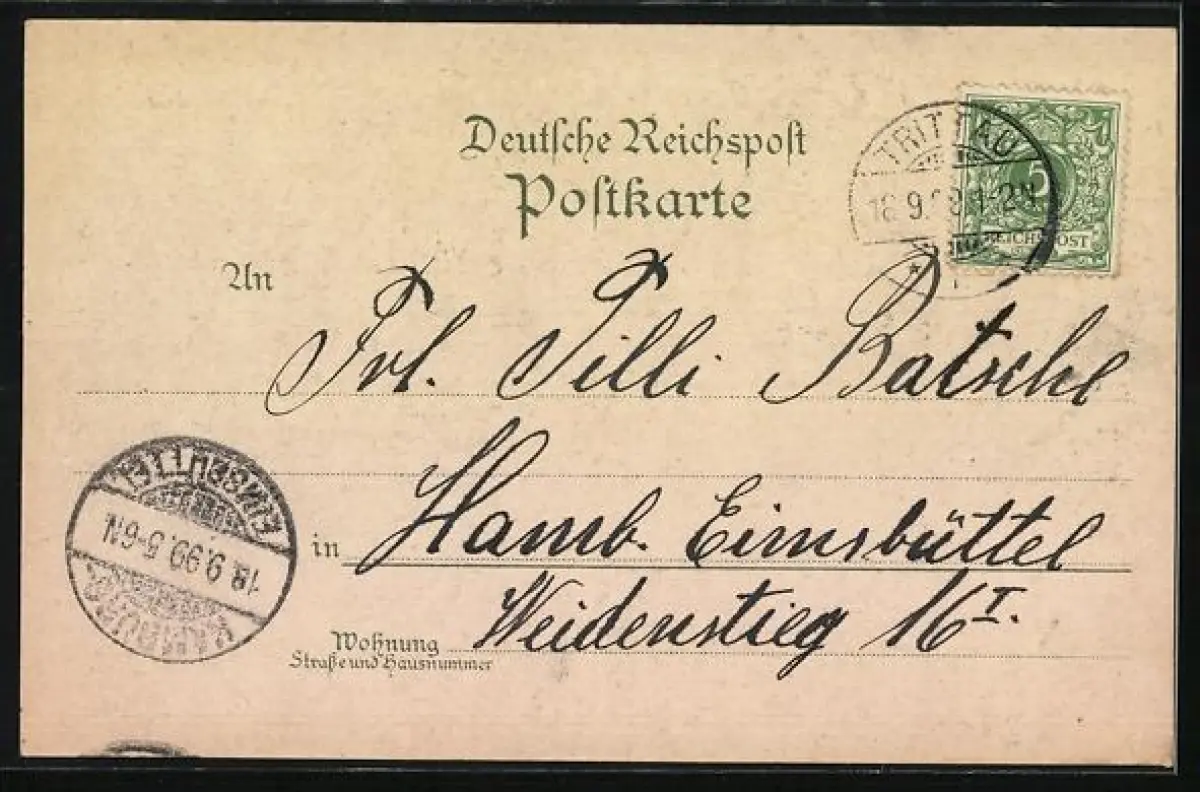 Deutſche Reichspoſt
Poſtkarte
TRITTAU
18.9.99. 1-2N
5
REICHSPOST
An
Frl. Tilli Batsche
in Hamb. Eimsbüttel
Wohnung Weidenstieg 16 I.
Straße und Hausnummer
EIMSBÜTTEL
18.9.99. 5-6N.
HAMBURG